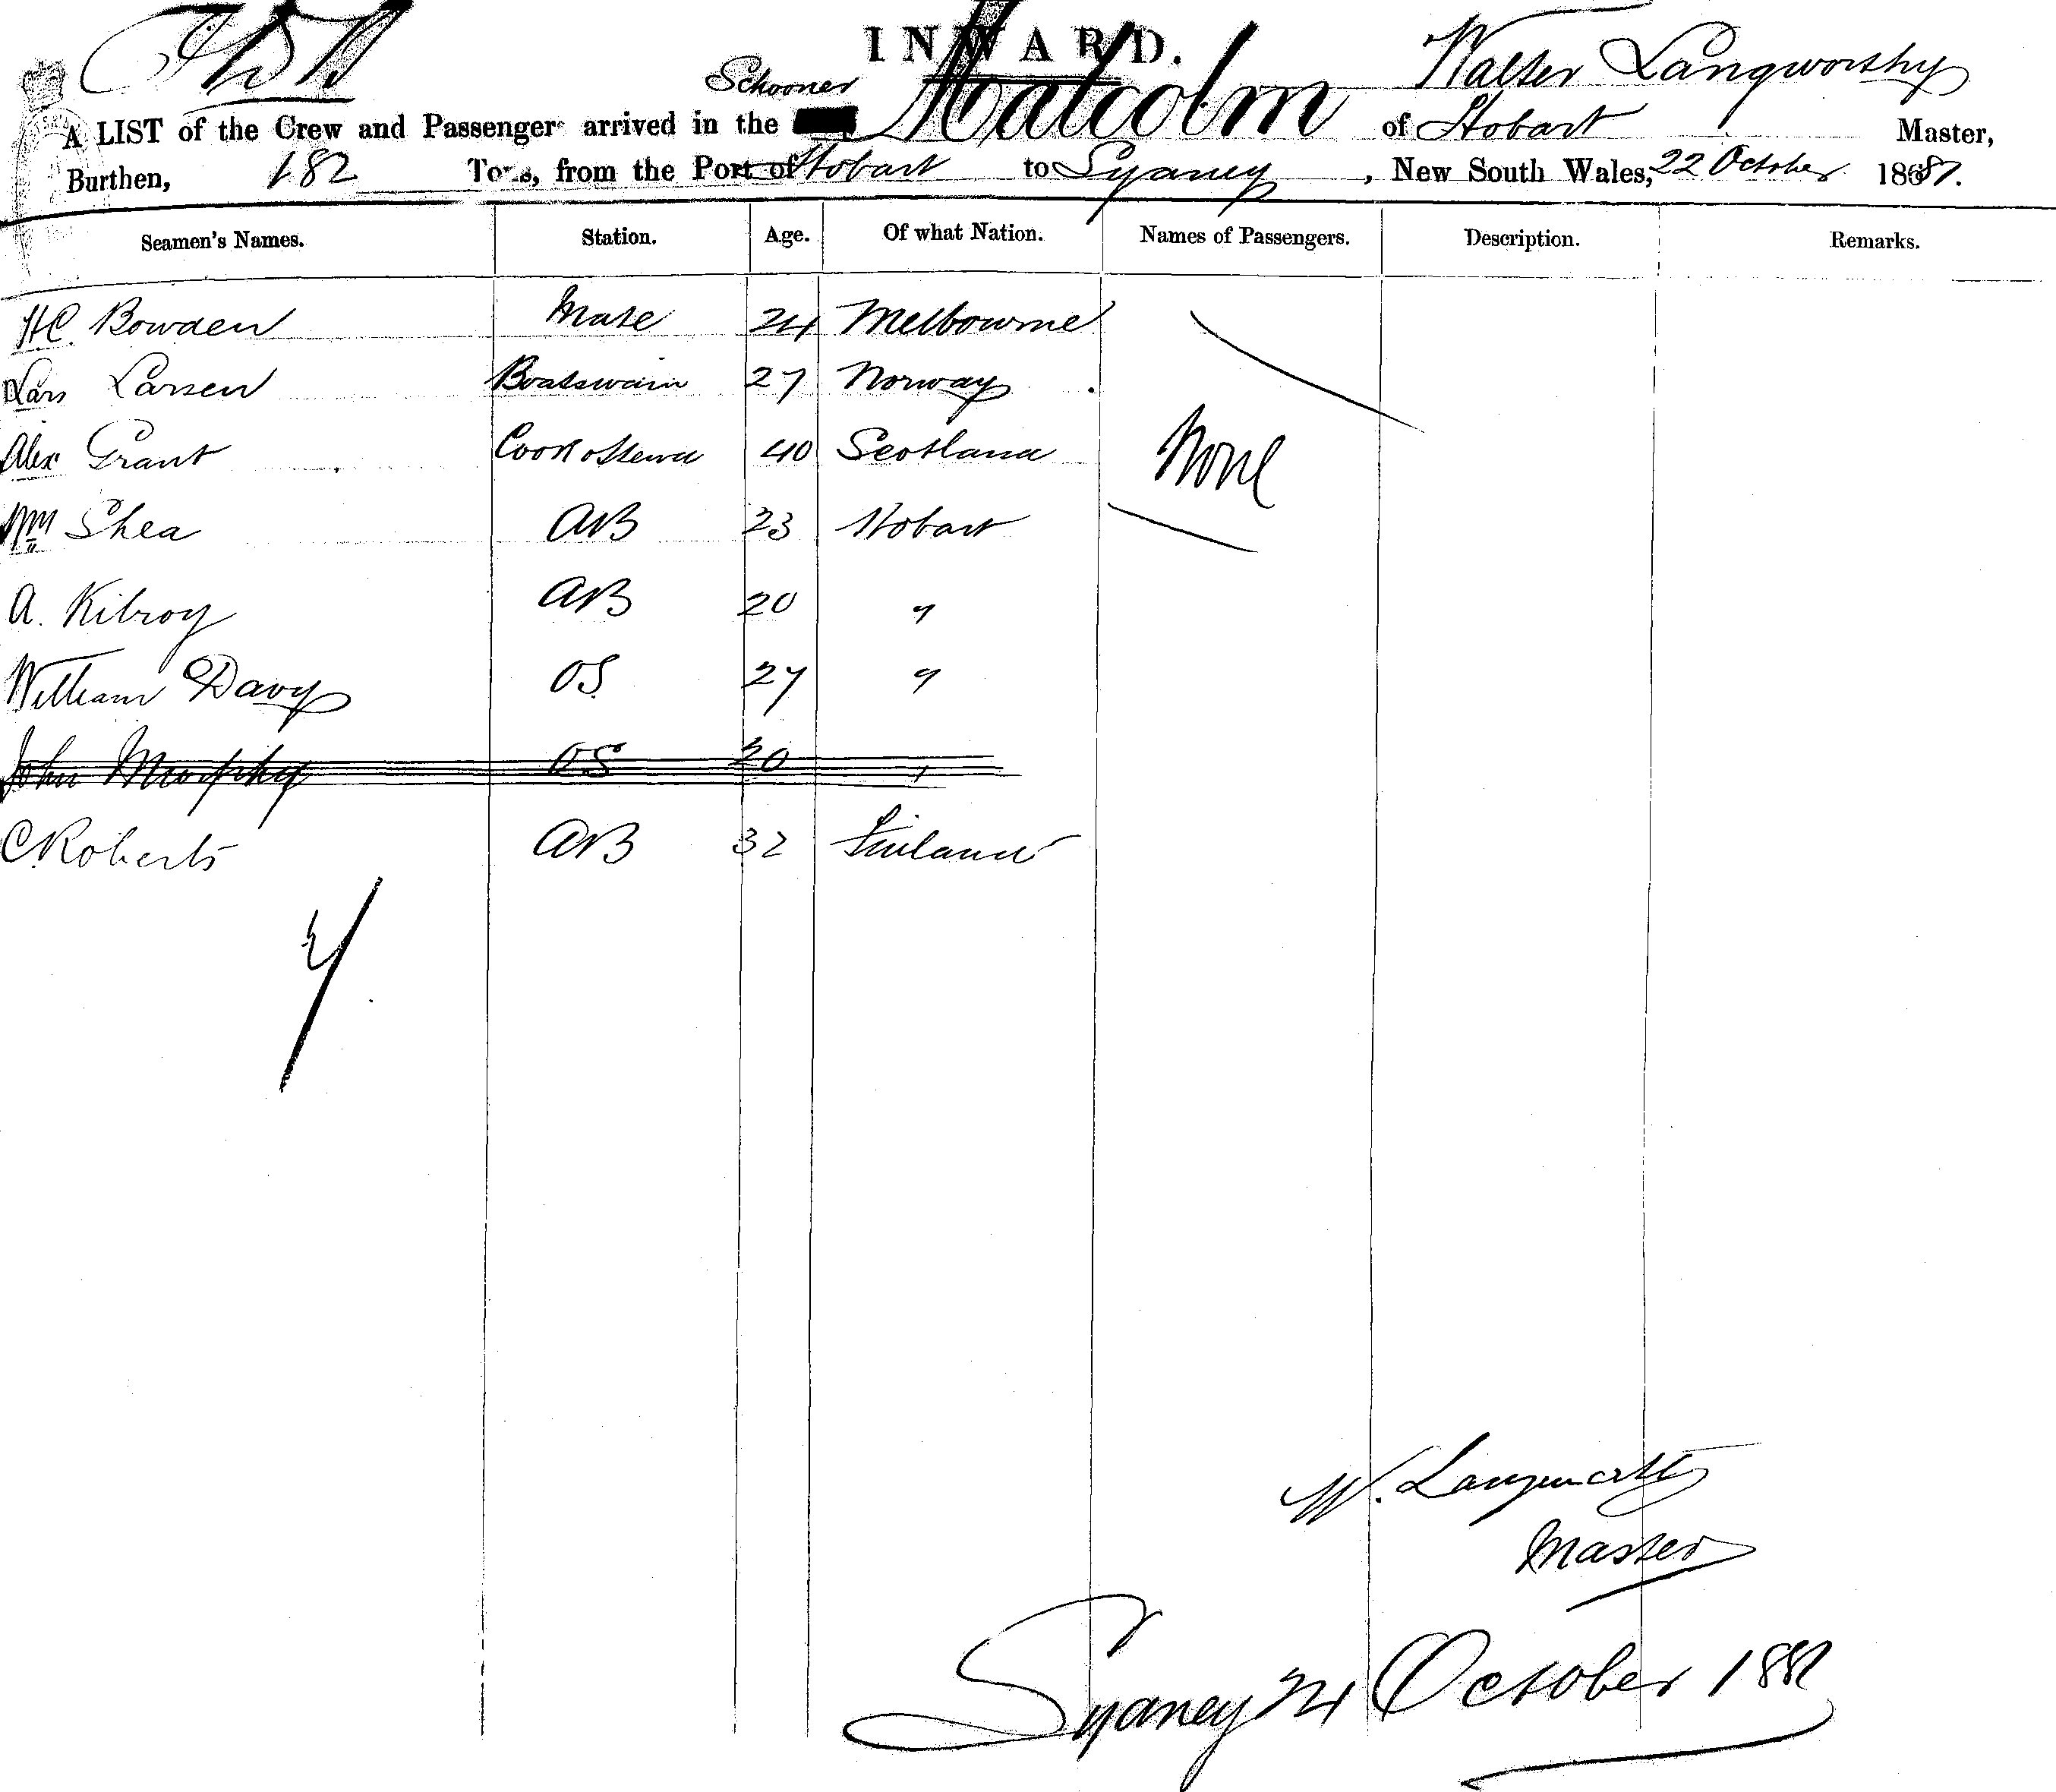 INWARD.
Schooner Malcolm Walter Langworthy
A LIST of the Crew and Passengers arrived in the of Hobart Master,
Burthen, 182 Tons, from the Port of Hobart to Sydney, New South Wales, 22 October 1887.
Seamen's Names. Station. Age. Of what Nation. Names of Passengers. Description. Remarks.
HC. Bowden Mate 24 Melbourne
Lars Larsen Boatswain 27 Norway
Alex Grant Cook & Stewd 40 Scotland None
Wm Shea AB 23 Hobart
A. Kilroy AB 20 "
William Davy OS 27 "
John Murphy OS 20 "
C Roberts AB 32 Finland
W. Langworthy
Master
Sydney 24 October